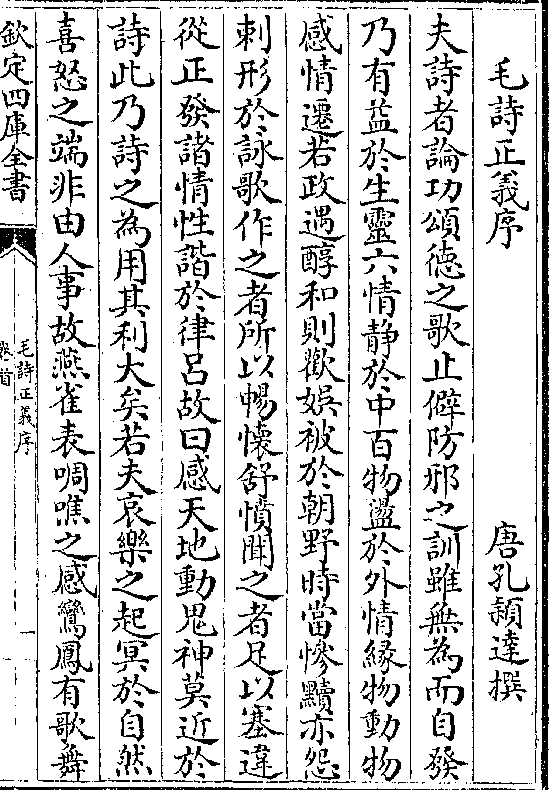 毛詩正義序　唐孔穎達撰
夫詩者論功頌德之歌止僻防邪之訓雖無為而自發
乃有益於生靈六情静於中百物盪於外情緣物動物
感情遷若政遇醇和則歡娛被於朝野時當慘黷亦怨
刺形於詠歌作之者所以暢懷舒憤聞之者足以塞違
從正發諸情性諧於律呂故曰感天地動鬼神莫近於
詩此乃詩之為用其利大矣若夫哀樂之起冥於自然
喜怒之端非由人事故燕雀表啁噍之感鸞鳳有歌舞
欽定四庫全書
毛詩正義序
卷首
一